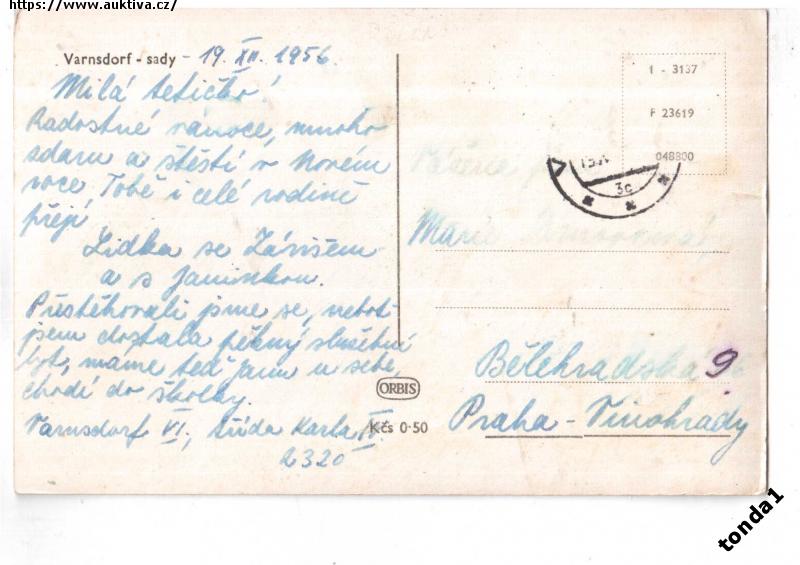 https://www.auktiva.cz/
Varnsdorf - sady - 19. XII. 1956
Milá tetičko!
Radostné vánoce, mnoho
zdaru a štěstí v Novém
roce Tobě i celé rodině
přejí
Lidka se Závišem
a s Janinkou.
Přestěhovali jsme se, neboť
jsem dostala pěkný služební
byt, máme teď Janu u sebe,
chodí do školky.
Varnsdorf VI., třída Karla IV.
2320
1 - 3137
F 23619
048800
3c
Marie
Bělehradská 9
Praha - Vinohrady
ORBIS
Kčs 0·50
tonda1